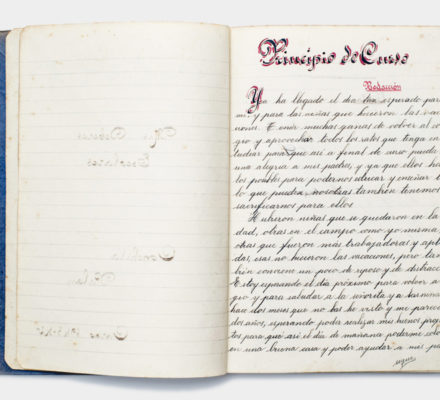 Principio de Curso
Redacción
Ya ha llegado el día tan esperado para
mi y para las niñas que hicieron las vaca
iones. Tenía muchas ganas de volver al
gro y aprovechar todos los ratos que tenga
tudiar para que así a final de curso pueda
una alegría a mis padres, y ya que ellos ha
los posibles para podernos educar y enseñar
lo que pueden, nosotras también tenemos
sacrificarnos para ellos
Hubieron niñas que se quedaron en la
dad, otras en el campo como yo misma,
otras que fueron más trabajadoras y
das, esas no hicieron las vacaciones, pero tam
bién conviene un poco de reposo y de distrac
Estoy esperando el día próximo para volver a
gro y para saludar a la señorita y a las
hace dos meses que no las he visto y me parece
dos años, esperando poder realizar mis buenos
tos para que así el día de mañana poderme colo
en una buena casa y poder ayudar a mis
sigue